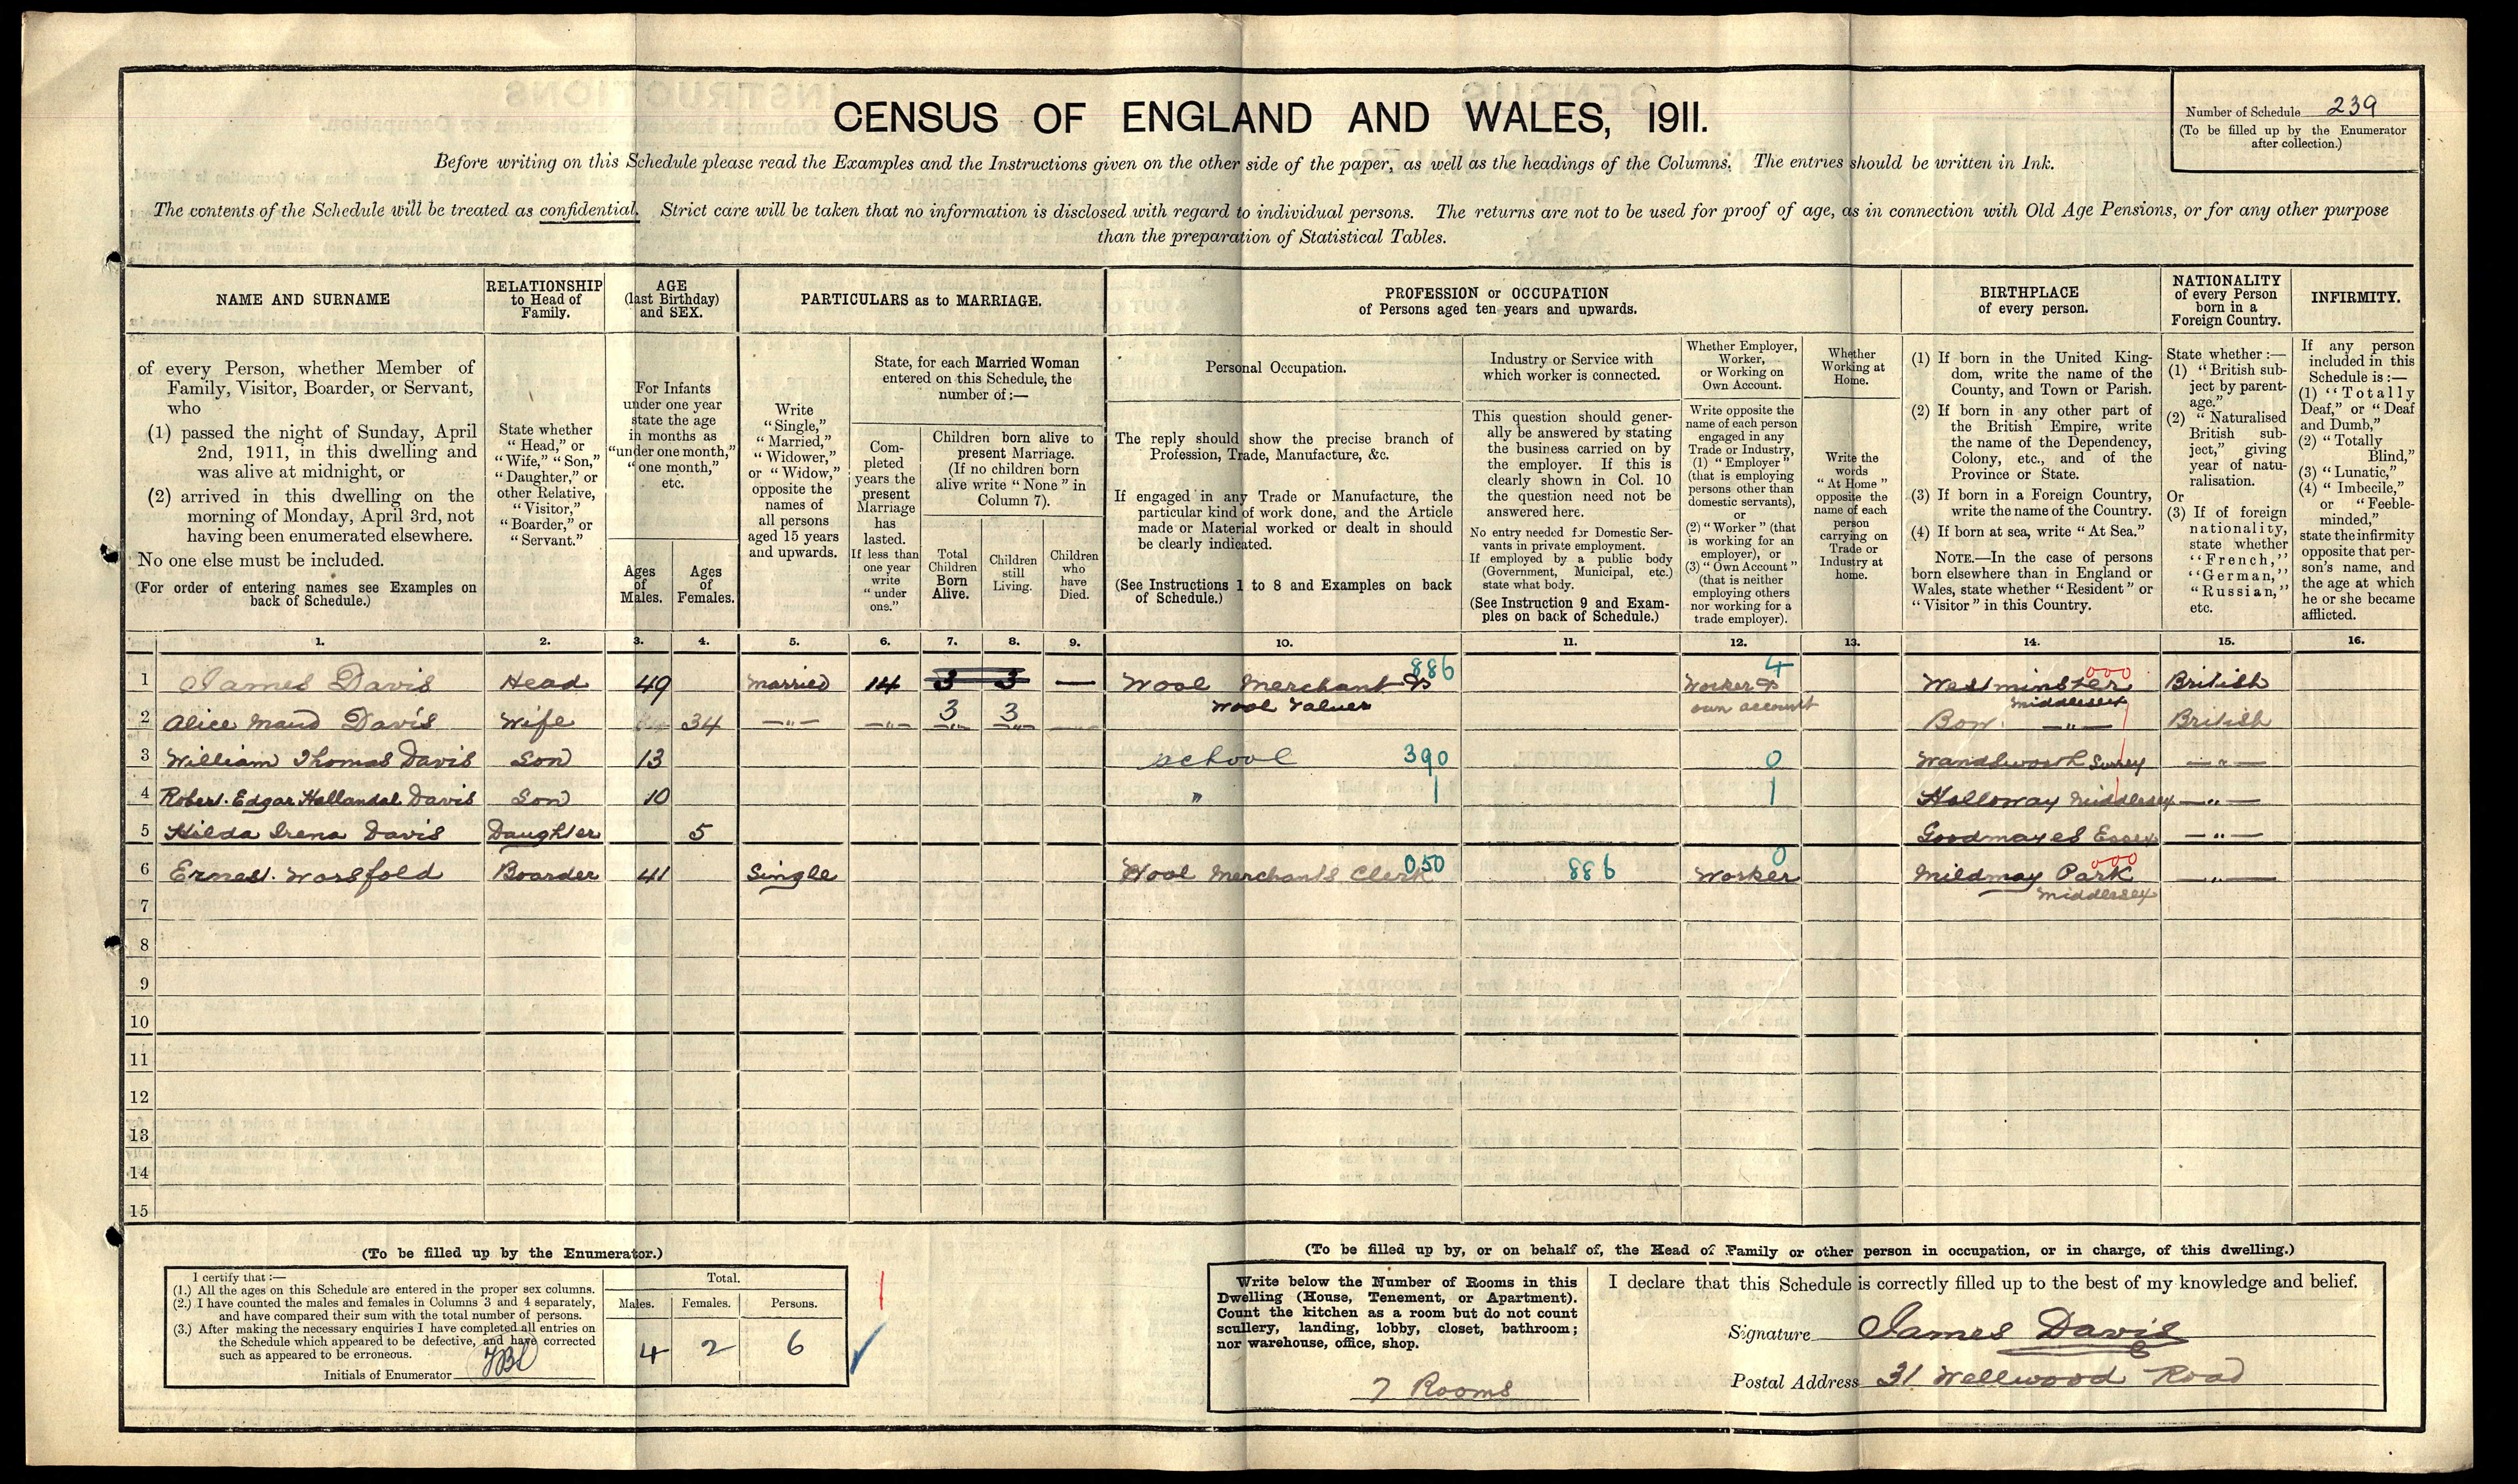 CENSUS OF ENGLAND AND WALES, 1911.
Number of Schedule 239
(To be filled up by the Enumerator
after collection.)
Before writing on this Schedule please read the Examples and the Instructions given on the other side of the paper, as well as the headings of the Columns. The entries should be written in Ink.
The contents of the Schedule will be treated as confidential. Strict care will be taken that no information is disclosed with regard to individual persons. The returns are not to be used for proof of age, as in connection with Old Age Pensions, or for any other purpose
than the preparation of Statistical Tables.
NAME AND SURNAME
of every Person, whether Member of
Family, Visitor, Boarder, or Servant,
who
(1) passed the night of Sunday, April
2nd, 1911, in this dwelling and
was alive at midnight, or
(2) arrived in this dwelling on the
morning of Monday, April 3rd, not
having been enumerated elsewhere.
No one else must be included.
(For order of entering names see Examples on
back of Schedule.)
RELATIONSHIP
to Head of
Family.
State whether
"Head," or
"Wife," "Son,"
"Daughter," or
other Relative,
"Visitor,"
"Boarder," or
"Servant."
AGE
(last Birthday)
and SEX.
For Infants
under one year
state the age
in months as
"under one month,"
"one month,"
etc.
Ages
of
Males.
Ages
of
Females.
PARTICULARS as to MARRIAGE.
Write
"Single,"
"Married,"
"Widower,"
or "Widow,"
opposite the
names of
all persons
aged 15 years
and upwards.
State, for each Married Woman
entered on this Schedule, the
number of:—
Com-
pleted
years the
present
Marriage
has
lasted.
If less than
one year
write
"under
one."
Children born alive to
present Marriage.
(If no children born
alive write "None" in
Column 7).
Total
Children
Born
Alive.
Children
still
Living.
Children
who
have
Died.
PROFESSION or OCCUPATION
of Persons aged ten years and upwards.
Personal Occupation.
The reply should show the precise branch of
Profession, Trade, Manufacture, &c.
If engaged in any Trade or Manufacture, the
particular kind of work done, and the Article
made or Material worked or dealt in should
be clearly indicated.
(See Instructions 1 to 8 and Examples on back
of Schedule.)
Industry or Service with
which worker is connected.
This question should gener-
ally be answered by stating
the business carried on by
the employer. If this is
clearly shown in Col. 10
the question need not be
answered here.
No entry needed for Domestic Ser-
vants in private employment.
If employed by a public body
(Government, Municipal, etc.)
state what body.
(See Instruction 9 and Exam-
ples on back of Schedule.)
Whether Employer,
Worker,
or Working on
Own Account.
Write opposite the
name of each person
engaged in any
Trade or Industry,
(1) "Employer"
(that is employing
persons other than
domestic servants),
or
(2) "Worker" (that
is working for an
employer), or
(3) "Own Account"
(that is neither
employing others
nor working for a
trade employer).
Whether
Working at
Home.
Write the
words
"At Home"
opposite the
name of each
person
carrying on
Trade or
Industry at
home.
BIRTHPLACE
of every person.
(1) If born in the United King-
dom, write the name of the
County, and Town or Parish.
(2) If born in any other part of
the British Empire, write
the name of the Dependency,
Colony, etc., and of the
Province or State.
(3) If born in a Foreign Country,
write the name of the Country.
(4) If born at sea, write "At Sea."
NOTE.—In the case of persons
born elsewhere than in England or
Wales, state whether "Resident" or
"Visitor" in this Country.
NATIONALITY
of every Person
born in a
Foreign Country.
State whether:—
(1) "British sub-
ject by parent-
age."
(2) "Naturalised
British sub-
ject," giving
year of natu-
ralisation.
Or
(3) If of foreign
nationality,
state whether
"French,"
"German,"
"Russian,"
etc.
INFIRMITY.
If any person
included in this
Schedule is:—
(1) "Totally
Deaf," or "Deaf
and Dumb,"
(2) "Totally
Blind,"
(3) "Lunatic,"
(4) "Imbecile,"
or "Feeble-
minded,"
state the infirmity
opposite that per-
son's name, and
the age at which
he or she became
afflicted.
1. 2. 3. 4. 5. 6. 7. 8. 9. 10. 11. 12. 13. 14. 15. 16.
1 James Davis Head 49 Married 14 3 3 — Wool Merchant & 886 Worker & 4 Westminster 000 British
Wool Valuer own account Middlesex
2 Alice Maud Davis Wife 34 —"— —"— 3 3 —"— —"— Bow —"— British
3 William Thomas Davis Son 13 school 390 0 Wandsworth Surrey —"—
4 Robert Edgar Hallandal Davis Son 10 " 1 1 Holloway Middlesex —"—
5 Hilda Irena Davis Daughter 5 Goodmayes Essex —"—
6 Ernest Worsfold Boarder 41 Single Wool Merchants Clerk 050 886 Worker 0 Mildmay Park 000 —"—
Middlesex
7
8
9
10
11
12
13
14
15
(To be filled up by the Enumerator.)
I certify that:—
(1.) All the ages on this Schedule are entered in the proper sex columns.
(2.) I have counted the males and females in Columns 3 and 4 separately,
and have compared their sum with the total number of persons.
(3.) After making the necessary enquiries I have completed all entries on
the Schedule which appeared to be defective, and have corrected
such as appeared to be erroneous.
Initials of Enumerator
Total.
Males. Females. Persons.
4 2 6
(To be filled up by, or on behalf of, the Head of Family or other person in occupation, or in charge, of this dwelling.)
Write below the Number of Rooms in this
Dwelling (House, Tenement, or Apartment).
Count the kitchen as a room but do not count
scullery, landing, lobby, closet, bathroom;
nor warehouse, office, shop.
7 Rooms
I declare that this Schedule is correctly filled up to the best of my knowledge and belief.
Signature James Davis
Postal Address 31 Wellwood Road